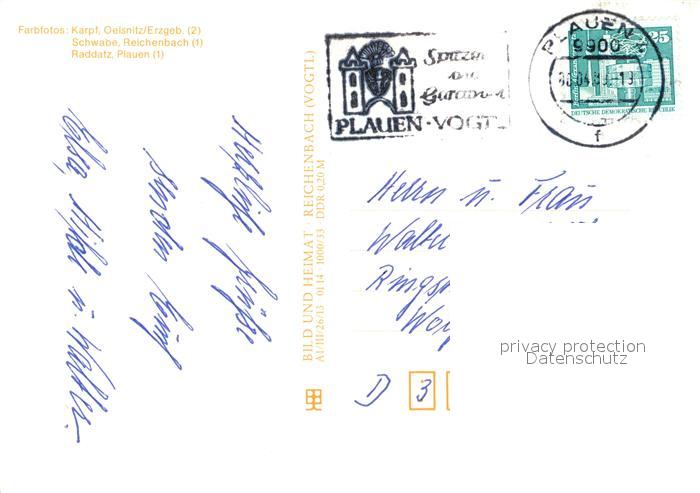 Farbfotos: Karpf, Oelsnitz/Erzgeb. (2)
Schwabe, Reichenbach (1)
Raddatz, Plauen (1)
Spitzen
und
Gardinen
PLAUEN·VOGTL
PLAUEN
9900
f
25
DEUTSCHE DEMOKRATISCHE REPUBLIK
BILD UND HEIMAT · REICHENBACH (VOGTL)
A1/III/26/13 01 14 1000/33 DDR 0,20 M
Herzliche Grüße
senden Euch
u. Walter.
Herrn u. Frau
D 3
privacy protection
Datenschutz